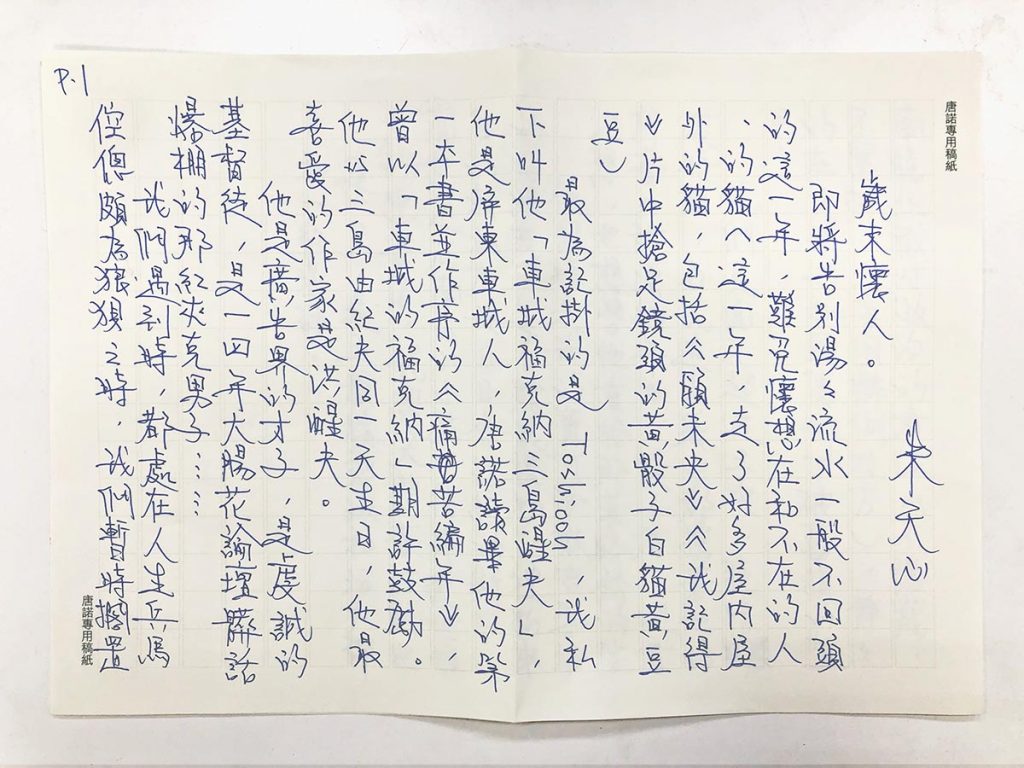 唐諾專用稿紙
朱天心
歲末懷人。
即將告別湯湯流水一般不回頭
的這一年，難免懷想在和不在的人
、的貓（這一年，走了好多屋內屋
外的貓，包括《願未央》《我記得
》片中搶足鏡頭的黃骰子白貓黃豆
豆）
最為記掛的是 Toshiooh，我私
下叫他「車城福克納三島醒夫」，
他是屏東車城人，唐諾讀畢他的第
一本書並作序的《痛苦編年》，
曾以「車城的福克納」期許鼓勵。
他與三島由紀夫同一天生日，他最
喜愛的作家是洪醒夫。
他是廣告界的才子，是虔誠的
基督徒，是一四年大腸花論壇髒話
爆棚的那紅夾克男子……
我們遇到時，都處在人生兵馬
倥傯頗為狼狽之時，我們暫時擱置
唐諾專用稿紙
P.1